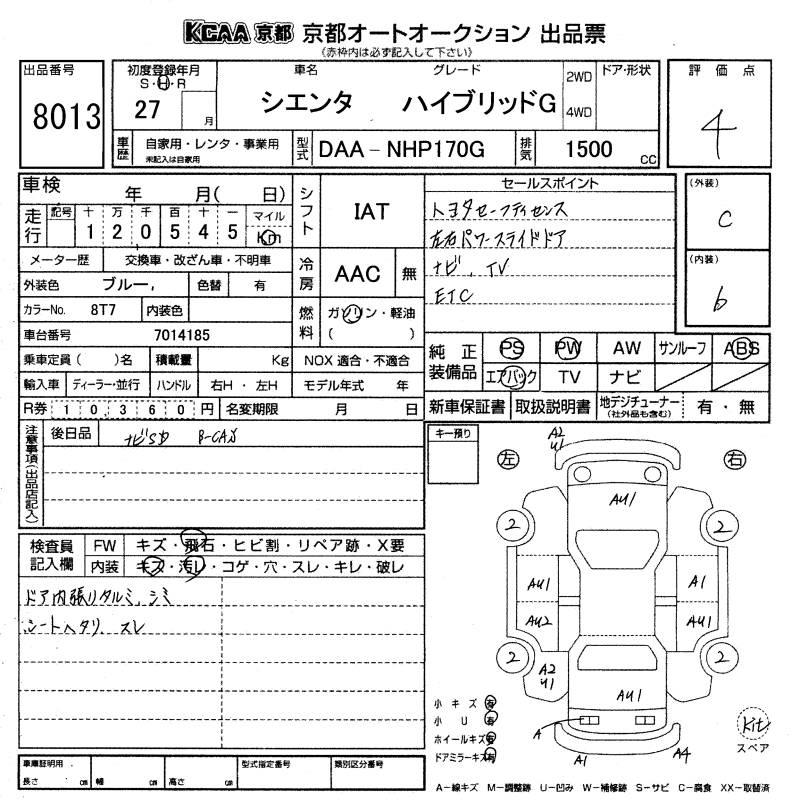 KCAA 京都 京都オートオークション 出品票
(赤枠内は必ず記入して下さい)
出品番号
8013
初度登録年月
S・H・R
27 月
車名 グレード
シエンタ ハイブリッドG
2WD
4WD
ドア・形状
評価点
4
車歴
自家用・レンタ・事業用
未記入は自家用
型式
DAA－NHP170G
排気
1500 CC
車検 年 月( 日)
走行
記号 十 万 千 百 十 一 マイル
1 2 0 5 4 5 Km
メーター歴 交換車・改ざん車・不明車
外装色 ブルー, 色替 有
カラーNo. 8T7 内装色
車台番号 7014185
乗車定員( )名 積載量 Kg
輸入車 ディーラー・並行 ハンドル 右H・左H
R券 10360円 名変期限 月 日
シフト
IAT
冷房
AAC 無
燃料
ガソリン・軽油
( )
NOX 適合・不適合
モデル年式 年
セールスポイント
トヨタセーフティセンス
左右パワースライドドア
ナビ、TV
ETC
(外装)
C
(内装)
b
純正装備品
PS PW AW サンルーフ ABS
エアバック TV ナビ
新車保証書 取扱説明書 地デジチューナー(社外品も含む) 有・無
注意事項(出品店記入)
後日品 ナビSD B-CAS
検査員記入欄
FW キズ・飛石・ヒビ割・リペア跡・X要
内装 キズ・汚レ・コゲ・穴・スレ・キレ・破レ
ドア内張りタルミ、シミ
シートヘタリ、スレ
キー預り
左
右
A2
U1
AU1
2
2
AU1
A1
AU2
AU1
2
2
A2
U1
AU1
A
A1
A4
小キズ 有
小U 有
ホイールキズ 有
ドアミラーキズ 有
Kit
スペア
車庫証明用
長さ cm 幅 cm 高さ cm
型式指定番号
類別区分番号
A－線キズ M－調整跡 U－凹み W－補修跡 S－サビ C－腐食 XX－取替済